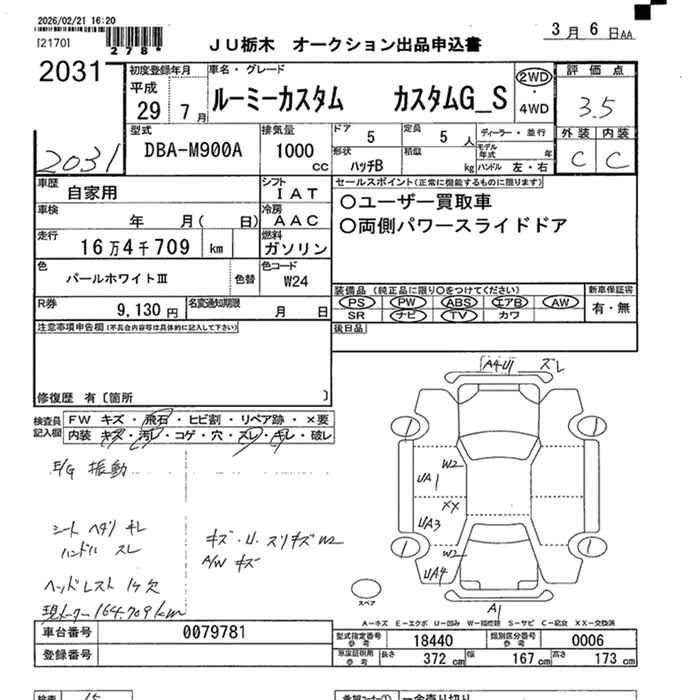 2026/02/21 16:20
[2170]
278*
JU栃木 オークション出品申込書
3月6日AA
2031
初度登録年月
平成
29 7月
車名・グレード
ルーミーカスタム カスタムG_S
2WD
・
4WD
評価点
3.5
外装 内装
C C
2031
型式
DBA-M900A
排気量
1000
cc
ドア
5
定員
5人
形状
ハッチB
積載
kg
ディーラー・並行
モデル年式 年
ハンドル 左・右
車歴
自家用
シフト
IAT
車検
年 月( 日)
冷房
AAC
走行
16万4千709 km
燃料
ガソリン
色
パールホワイトⅢ
色替
色コード
W24
R券
9,130円
名変通知期限
月 日
セールスポイント(正常に機能するものに限ります)
〇ユーザー買取車
〇両側パワースライドドア
装備品(純正品に限り〇をつけてください)
PS PW ABS エアB AW
SR ナビ TV カワ
新車保証書
有・無
後日品
注意事項申告欄(不具合内容等は具体的に記入して下さい)
修復歴 有〔箇所 〕
検査員
記入欄
FW キズ・飛石・ヒビ割・リペア跡・×要
内装 キズ・汚レ・コゲ・穴・スレ・キレ・破レ
E/G 振動
シート ヘタリ キレ
ハンドル スレ
ヘッドレスト 1ケ欠
現メーター164,709km
キズ・U・スリキズW2
A/W キズ
A4U1 ズレ
1
1
1
1
W2
UA1
XX
UA3
W2
UA4
A1
スペア
A-キズ E-エクボ U-凹み W-補修跡 S-サビ C-腐食 XX-交換済
車台番号
0079781
登録番号
型式指定番号
参考
18440
類別区分番号
参考
0006
車庫証明用
参考
長さ
372 cm
幅
167 cm
高さ
173 cm
検査
15